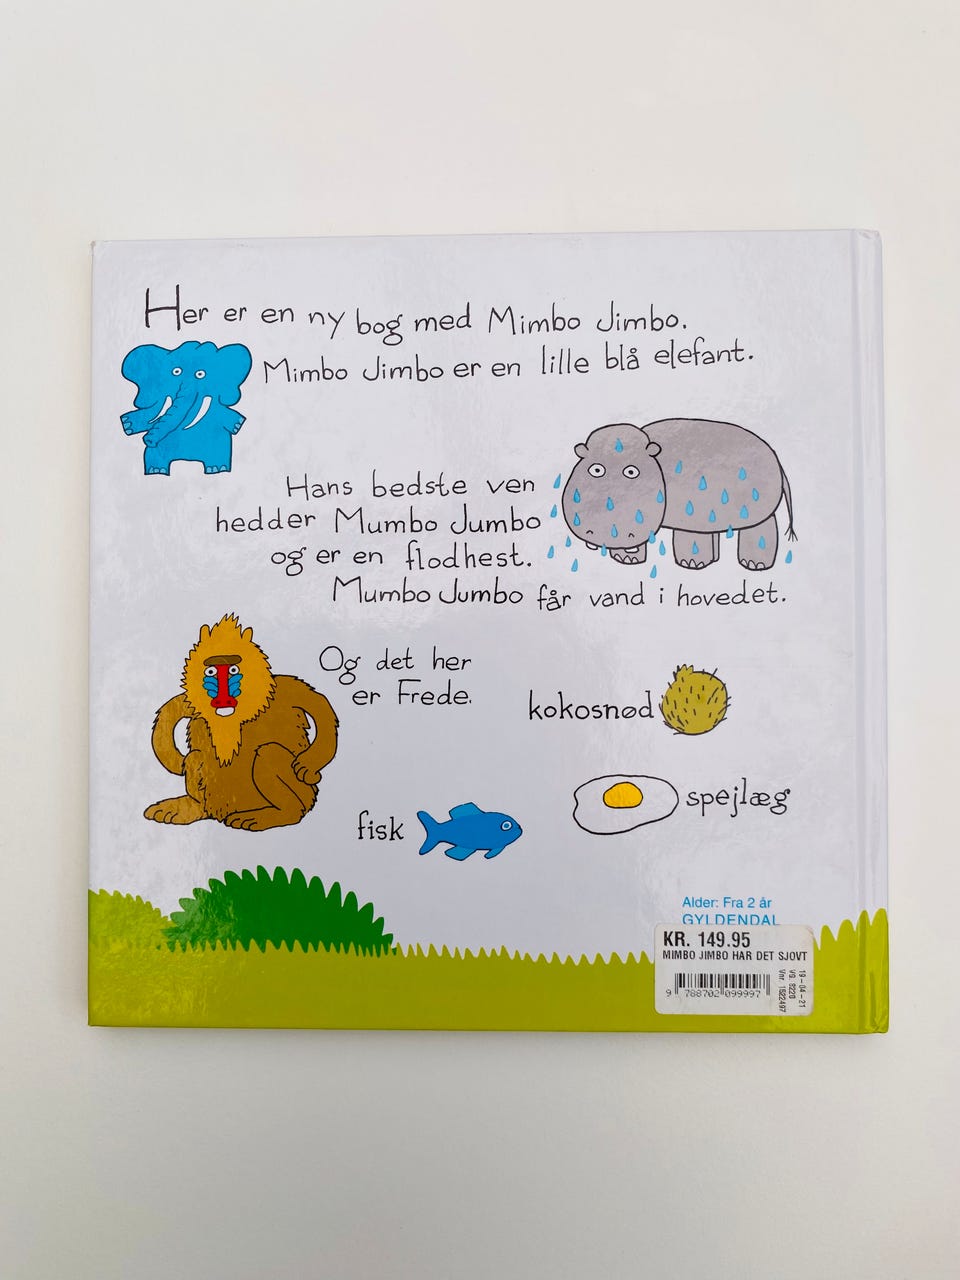 Her er en ny bog med Mimbo Jimbo.
Mimbo Jimbo er en lille blå elefant.
Hans bedste ven
hedder Mumbo Jumbo
og er en flodhest.
Mumbo Jumbo får vand i hovedet.
Og det her
er Frede.
kokosnød
spejlæg
fisk
Alder: Fra 2 år
GYLDENDAL
KR. 149.95
MIMBO JIMBO HAR DET SJOVT
9 788702 099997
19-04-21
VG. 8220
Vnr. 1522497